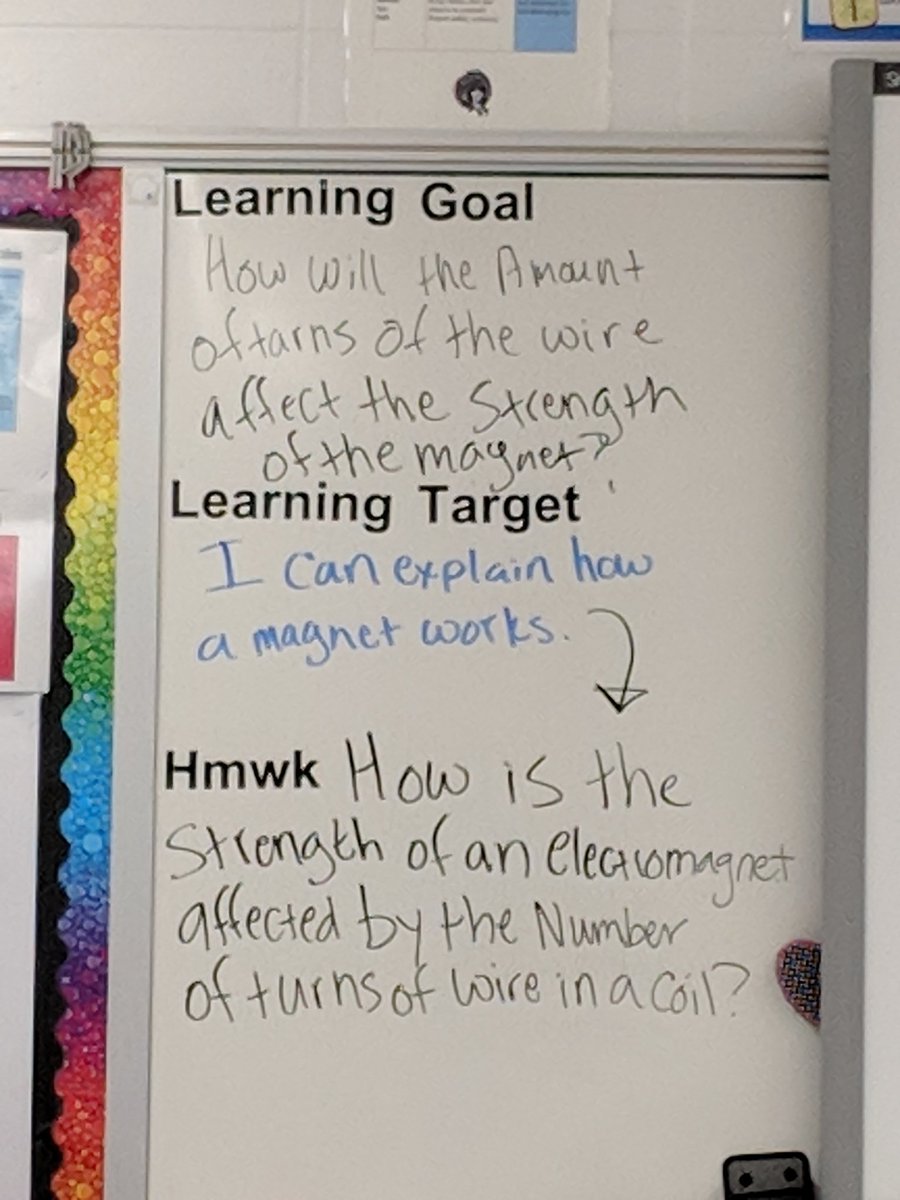 Learning Goal
How will the Amount
of tarns of the wire
affect the Strength
of the magnet?
Learning Target
I can explain how
a magnet works.
Hmwk How is the
Strength of an Electromagnet
affected by the Number
of turns of wire in a coil?